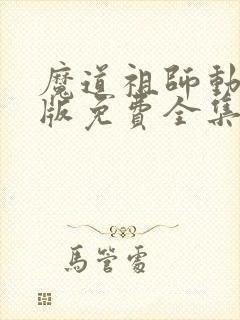 魔道祖師動
版免費全集
馬管雷